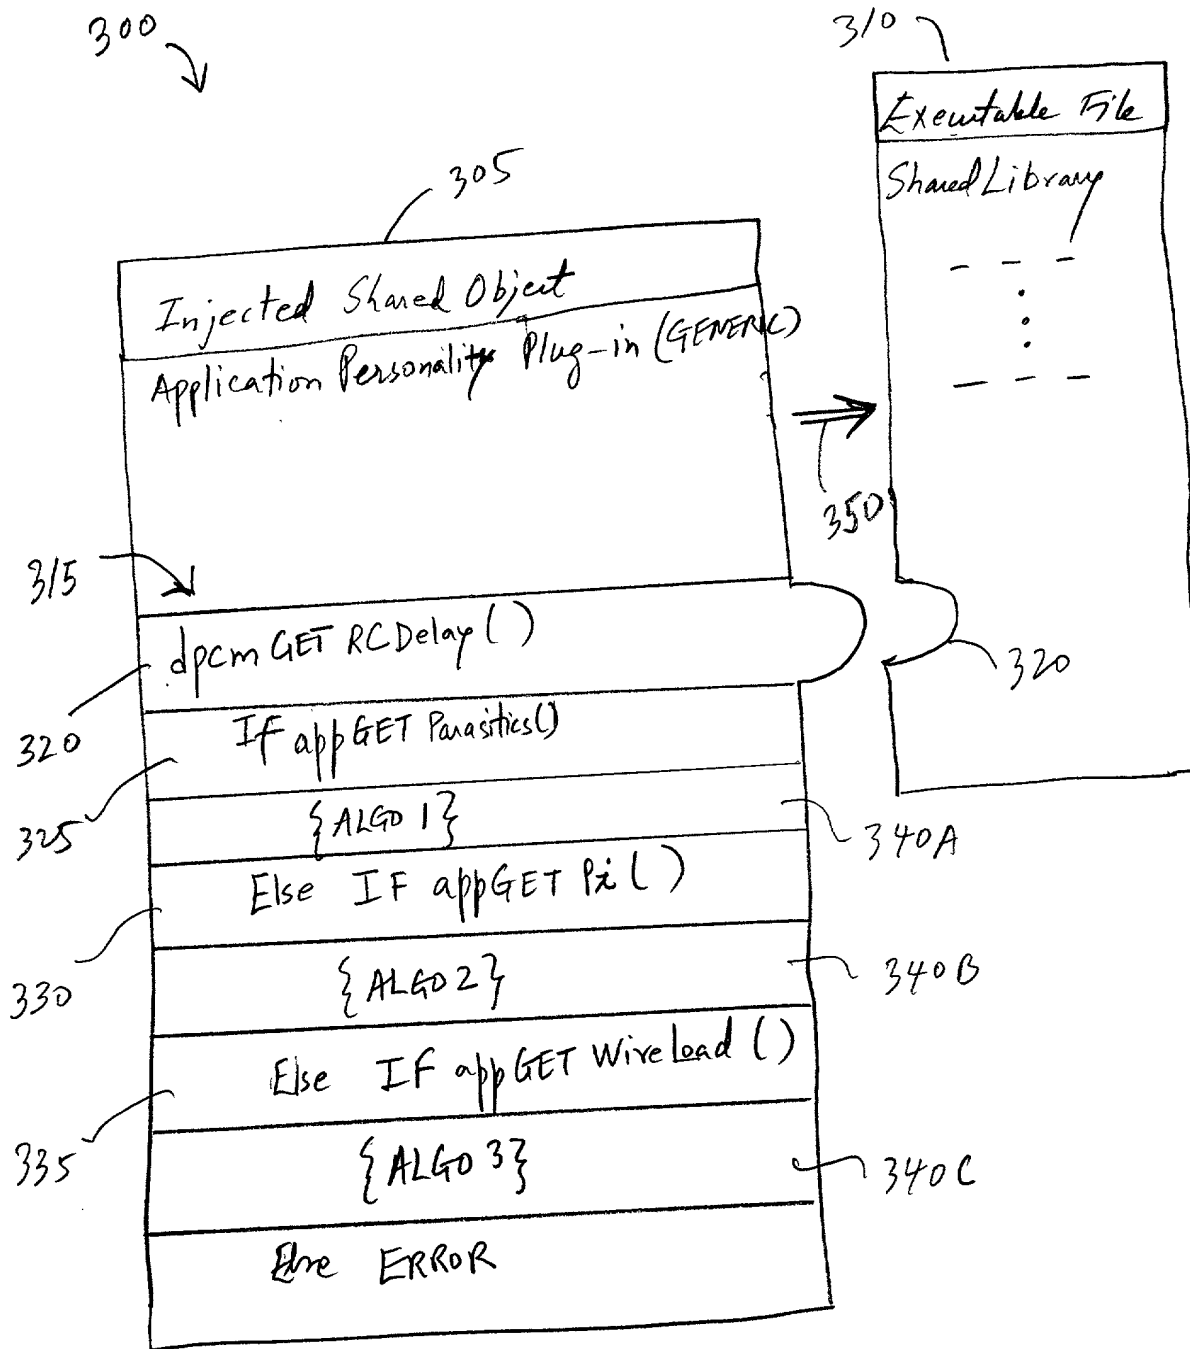 300
310
Executable File
Shared Library
305
Injected Shared Object
Application Personality Plug-in (GENERIC)
350
315
dpcmGET RCDelay()
320
320
If appGET Parasitics()
325
{ALGO 1}
340A
Else IF appGET Pi()
330
{ALGO 2}
340B
Else IF appGET WireLoad()
335
{ALGO 3}
340C
Else ERROR